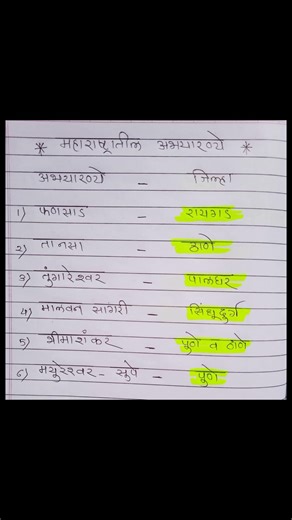 * महाराष्ट्रातील अभयारण्ये *
अभयारण्ये - जिल्हा
१) फणसाड - रायगड
२) तानसा - ठाणे
३) तुंगारेश्वर - पालघर
४) मालवन सागरी - सिंधूदुर्ग
५) भीमाशंकर - पुणे व ठाणे
६) मयुरेश्वर - सुपे - पुणे